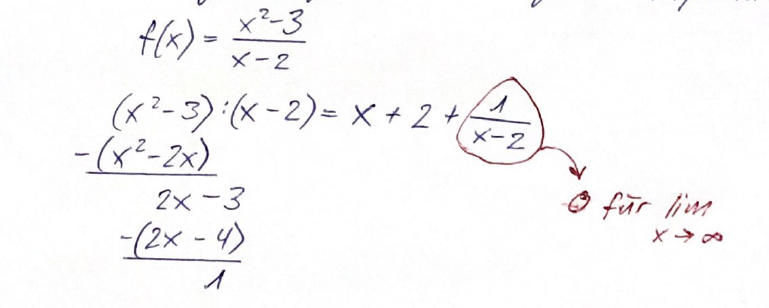 f(x) = x²-3 / x-2
(x²-3):(x-2) = x + 2 + 1 / x-2
-(x²-2x)
2x-3
-(2x-4)
1
0 für lim
x→∞